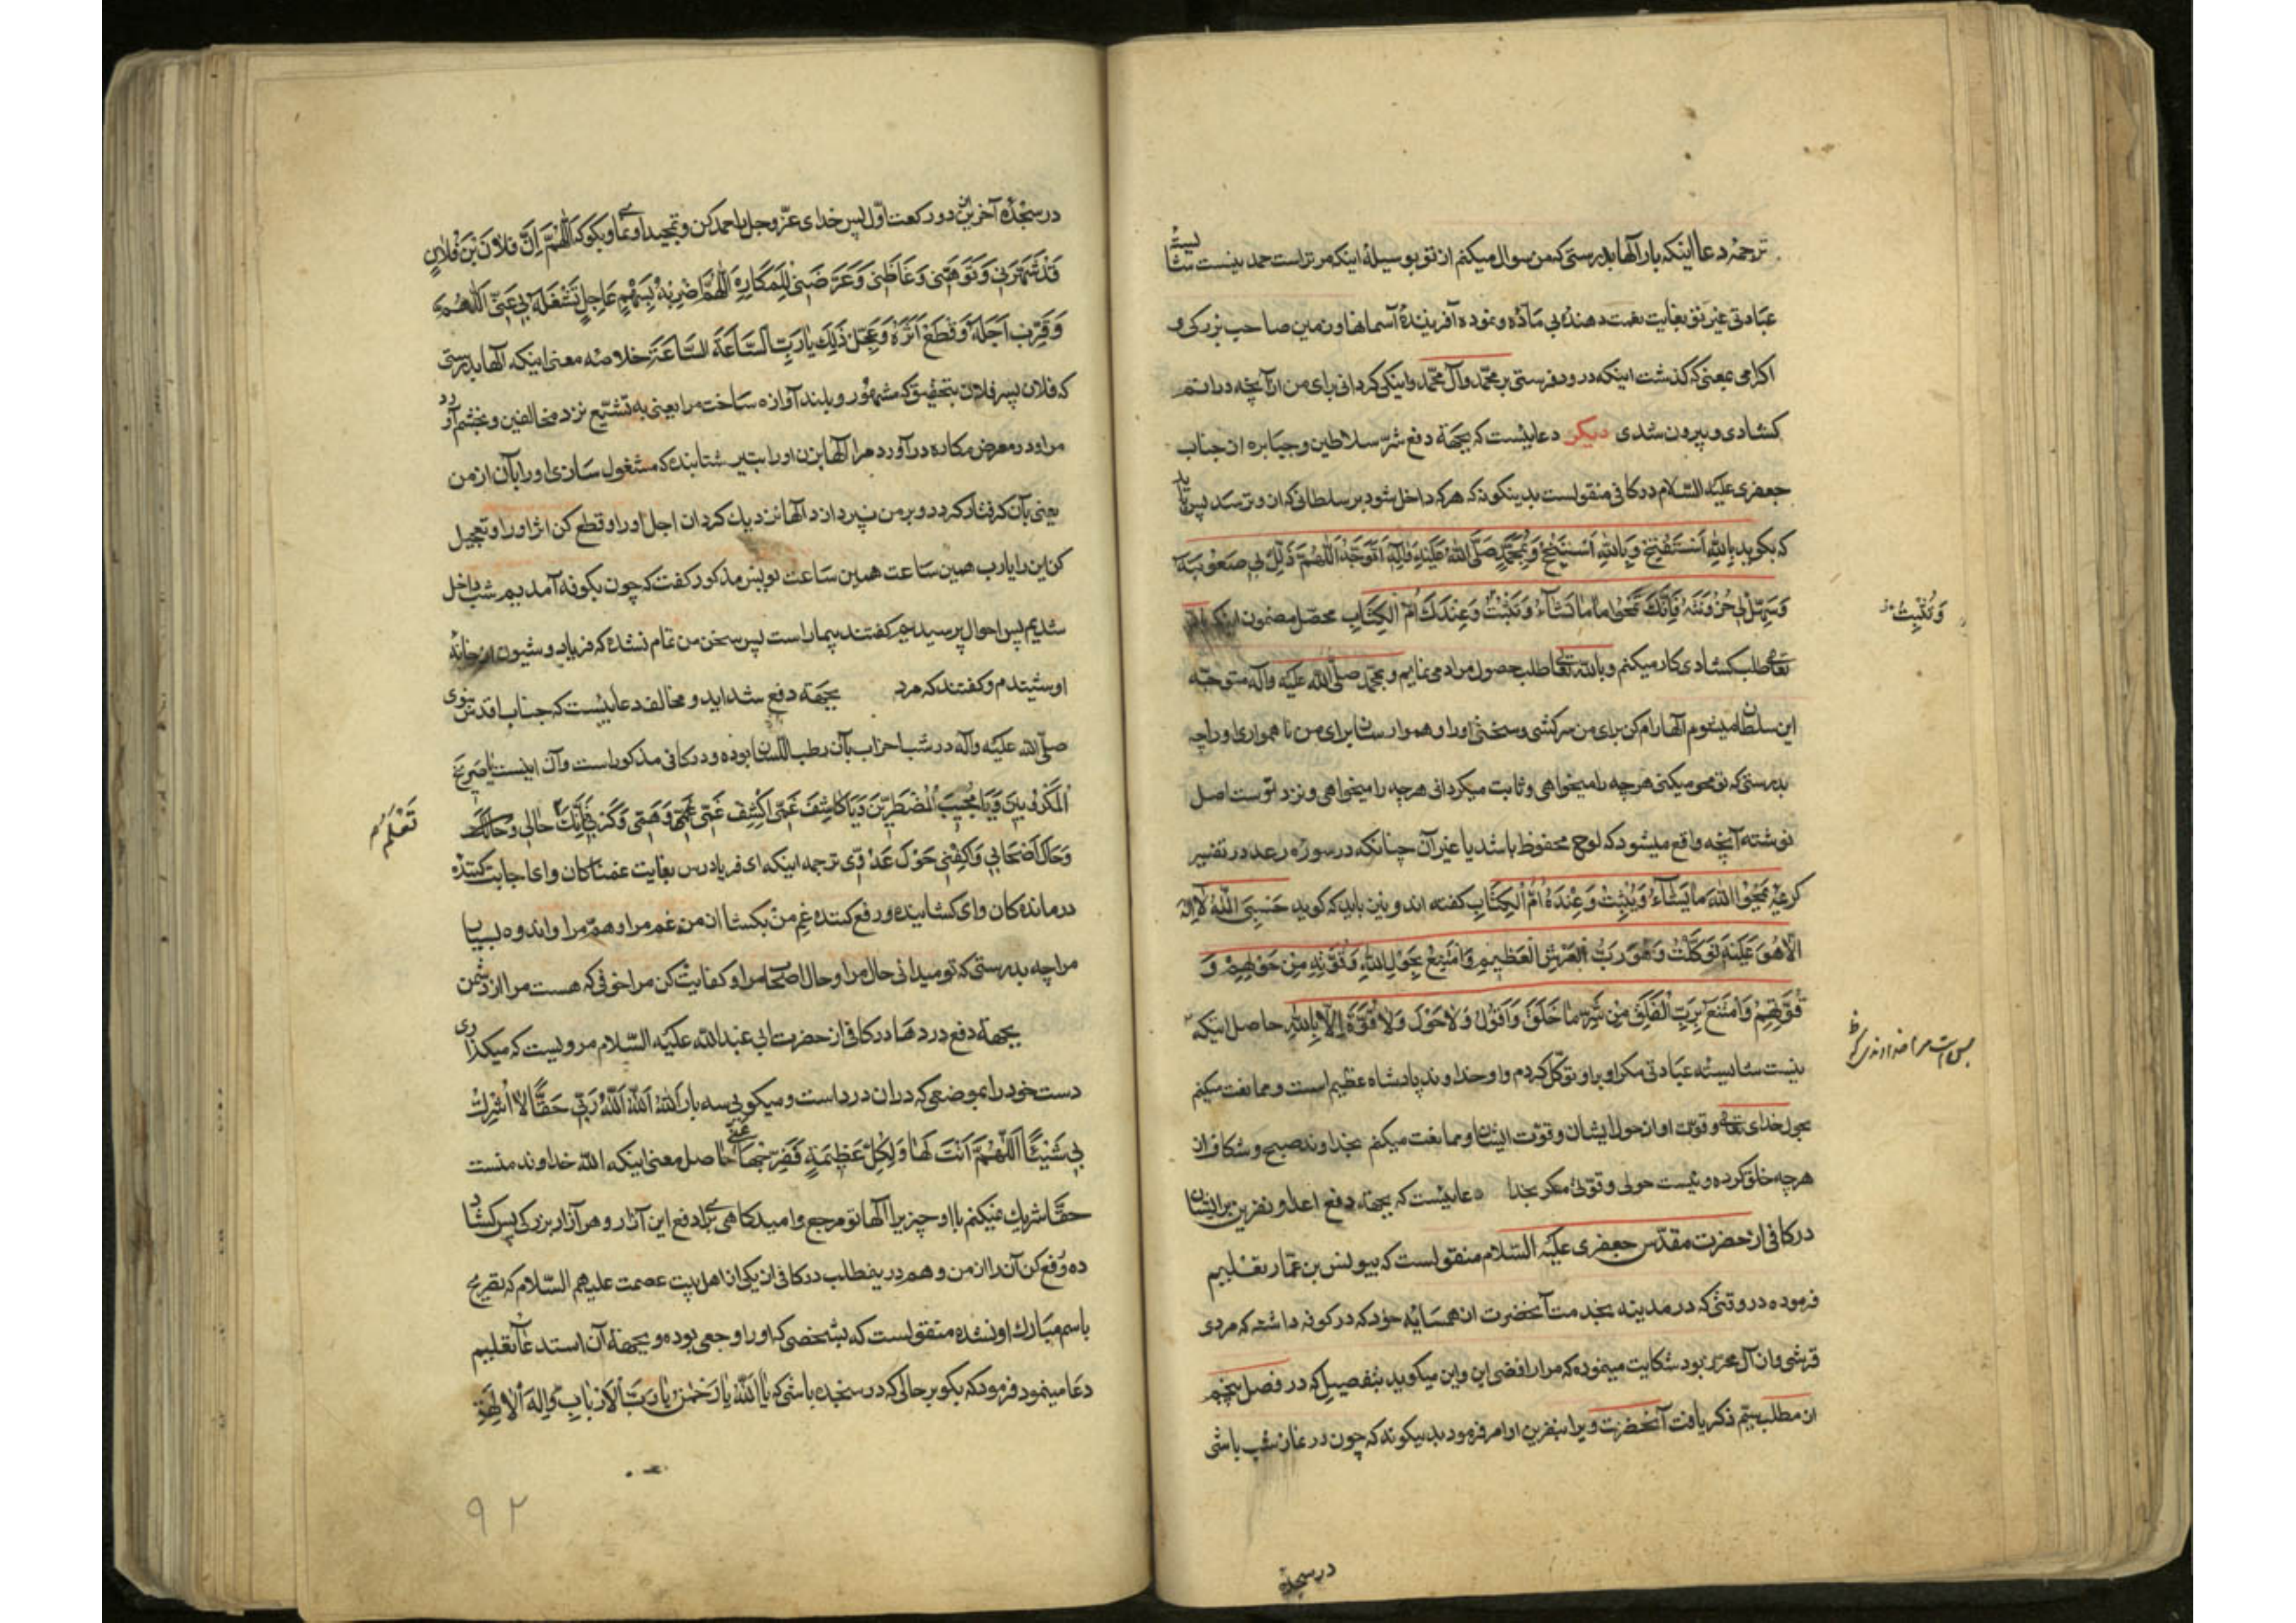 ترجمهٔ دعا اینکه بار الها بدرستی که من سوال میکنم از تو بوسیلهٔ اینکه مر تراست حمد نیست شایستهٔ
عبادتی غیر تو بغایت نعمت دهندهٔ بی ماده و نموده آفرینندهٔ آسمانها و زمین صاحب بزرکی و
اکرامی بمعنی که کذشت اینکه درود فرستی بر محمد وآل محمد و اینکه کردانی برای من از آنچه در آنم
کشادی و بیرون شدی دیکر دعائیست که بجهة دفع شر سلاطین و جبابره از جناب
جعفری علیه السلام در کافی منقولست بدینکونه که هر که داخل شود بر سلطانی که از و ترسد پس باید
که بکوید بِاللهِ اَسْتَفْتِحُ وَ بِاللهِ اَسْتَنْجِحُ وَ بِمُحَمَّدٍ صَلَّى اللهُ عَلَیْهِ وَ آلِهِ اَتَوَجَّهُ اَللّٰهُمَّ ذَلِّلْ لِی صُعُوبَتَهُ
وَ سَهِّلْ لِی حُزُونَتَهُ فَاِنَّكَ تَمْحُوا مَا تَشَآءُ وَ تُثْبِتُ وَ عِنْدَكَ اُمُّ الْكِتَابِ محصل مضمون اینکه از
تعالی طلب کشادی کار میکنم و بالله تعالی طلب حصول مراد می نمایم و بمحمد صلی الله علیه و آله متوجه
این سلطان میشوم الها رام کن برای من سرکشی و سختی او را و هموار ساز برای من ناهمواری او را چه
بدرستی که تو محو میکنی هر چه را میخواهی و ثابت میکردانی هر چه را میخواهی و نزد توست اصل
نوشته آنچه واقع میشود که لوح محفوظ باشد یا غیر آن چنانکه در سوره رعد در تفسیر
کریمهٔ یَمْحُوا اللهُ مَا یَشَآءُ وَ یُثْبِتُ وَ عِنْدَهُ اُمُّ الْكِتَابِ کفته اند و نیز باید که کوید حَسْبِیَ اللهُ لَا اِلٰهَ
اِلَّا هُوَ عَلَیْهِ تَوَكَّلْتُ وَ هُوَ رَبُّ الْعَرْشِ الْعَظِیمِ وَ اَمْتَنِعُ بِحَوْلِ اللهِ وَ قُوَّتِهِ مِنْ حَوْلِهِمْ وَ
قُوَّتِهِمْ وَ اَمْتَنِعُ بِرَبِّ الْفَلَقِ مِنْ شَرِّ مَا خَلَقَ وَ اَقُولُ وَ لَا حَوْلَ وَ لَا قُوَّةَ اِلَّا بِاللهِ حاصل اینکه
نیست شایستهٔ عبادتی مکر او بر او توکل کردم و او خداوند پادشاه عظیم است و ممانعت میکنم
بحول خدای تعالی و قوت او از حول ایشان و قوت ایشان و ممانعت میکنم بخداوند صبح و شکاف از
هر چه خلق کرده و نیست حولی و قوتی مکر بخدا دعائیست که بجهة دفع اعدا و نفرین بر ایشان
در کافی از حضرت مقدس جعفری علیه السلام منقولست که بیونس بن عمار تعلیم
فرموده در وقتی که در مدینه بخدمت آنحضرت از همسایه خود که در کوفه داشته که مردی
قرشی و از آل محرز بود شکایت مینموده که مرا رافضی این و این میکوید بتفصیلی که در فصل پنجم
از مطلب ذکر یافت آنحضرت ویرا بنفرین او امر فرمود بدینکونه که چون در نماز شب باشی
در سجدهٔ
وَ تُثْبِتُ
بس است مرا خداوندی که
در سجدهٔ آخرین از دو رکعت اول پس خدای عز و جل را حمد کن و تمجید او نمای و بکو که اَللّٰهُمَّ اِنَّ فُلَانَ بْنَ فُلَانٍ
قَدْ شَهَرَنِی وَ نَوَّهَنِی وَ غَاظَنِی وَ عَرَّضَنِی لِلْمَكَارِهِ اَللّٰهُمَّ اضْرِبْهُ بِسَهْمٍ عَاجِلٍ تَشْغَلْهُ بِهِ عَنِّی اَللّٰهُمَّ
وَ قَرِّبْ اَجَلَهُ وَ اقْطَعْ اَثَرَهُ وَ عَجِّلْ ذٰلِكَ یَا رَبِّ السَّاعَةَ السَّاعَةَ خلاصه معنی اینکه الها بدرستی
که فلان پسر فلان بتحقیق که مشهور و بلند آوازه ساخت مرا یعنی به تشیع نزد مخالفین و بخشم آورد
مرا و در معرض مکاره در آورد مرا الها بزن او را بتیر شتابنده که مشغول سازی او را بآن از من
یعنی بآن کرفتار کردد و بر من نپردازد الها نزدیک کردان اجل او را و قطع کن اثر او را و تعجیل
کن این را یا رب همین ساعت همین ساعت یونس مذکور کفت که چون بکوفه آمدیم شب داخل
شدیم پس احوال پرسیدیم کفتند بیمار است پس سخن من تمام نشده که فریاد و شیون از خانه
او شنیدم و کفتند که مرد بجهة دفع شداید و مخالف دعائیست که جناب اقدس نبوی
صلی الله علیه و آله در شب احزاب بآن رطب اللسان بوده و در کافی مذکور است و آن اینست یَا صَرِیخَ
الْمَكْرُوبِینَ وَ یَا مُجِیبَ الْمُضْطَرِّینَ وَ یَا كَاشِفَ غَمِّی اكْشِفْ عَنِّی غَمِّی وَ هَمِّی وَ كَرْبِی فَاِنَّكَ حَالِی
وَ حَالَ اَصْحَابِی وَ اكْفِنِی هَوْلَ عَدُوِّی ترجمه اینکه ای فریادرس بغایت غمناکان و ای اجابت کننده
درماندهکان و ای کشاینده و رفع کننده غم من بکشا از من غم مرا و هم مرا و اندوه بسیار
مرا چه بدرستی که تو میدانی حال مرا و حال اصحاب مرا و کفایت کن مرا خوفی که هست مرا از دشمن
بجهة دفع دردها در کافی از حضرت ابی عبدالله علیه السلام مرویست که میکذاری
دست خود را بموضعی که در آن درد است و میکویی سه بار اَللهُ اَللهُ اَللهُ رَبِّی حَقًّا لَا اُشْرِكُ
بِهِ شَیْئًا اَللّٰهُمَّ اَنْتَ لَهَا وَ لِكُلِّ عَظِیمَةٍ فَفَرِّجْهَا عَنِّی حاصل معنی اینکه الله خداوند منست
حقا شریک نمیکنم با او چیزیرا الها تو مرجع و امیدکاهی برای دفع این آزار و هر آزار بزرکی پس کشاد
ده و رفع کن آن را از من و هم درین مطلب در کافی از یکی از اهل بیت عصمت علیهم السلام که تصریح
باسم مبارک او نشده منقولست که بشخصی که او را وجعی بوده و بجهة آن استدعا تعلیم
دعا مینمود فرمود که بکو بر حالی که در سجده باشی که یَا اَللهُ یَا رَحْمٰنُ یَا رَبَّ الْاَرْبَابِ وَ اِلٰهَ الْاٰلِهَةِ
تَعْلَمُ
۹۲